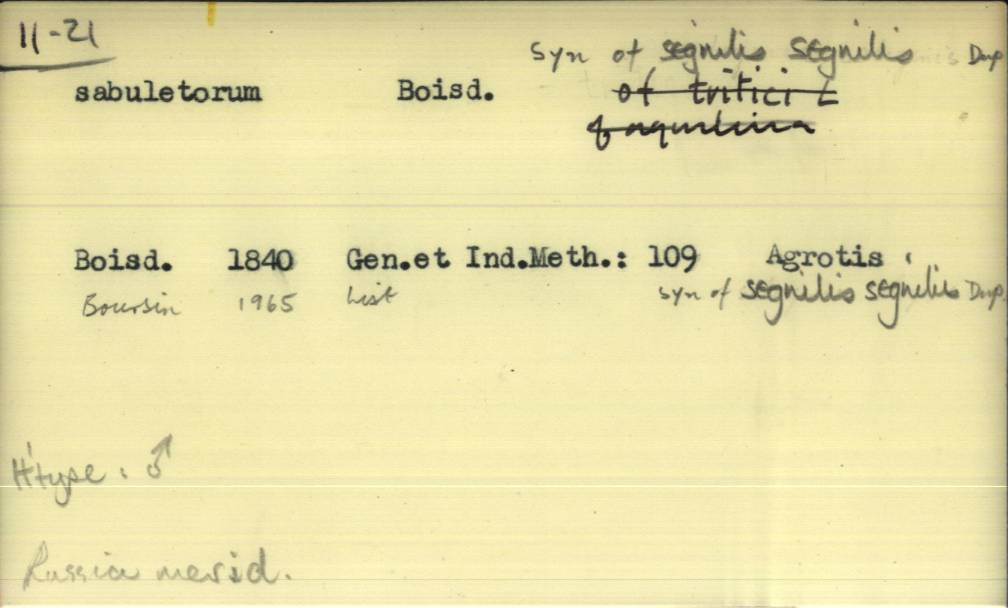 11-21
Syn of segnilis segnilis Dup
sabuletorum Boisd.
of tritici L
of aquilina
Boisd. 1840 Gen.et Ind.Meth.: 109 Agrotis
Boursin 1965 List syn of segnilis segnilis Dup
H'type : ♂
Russia merid.